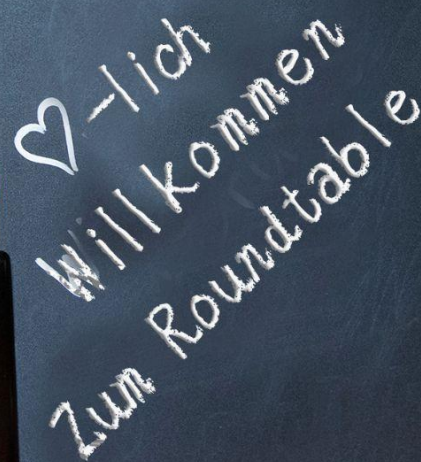 ♡-lich
Willkommen
Zum Roundtable